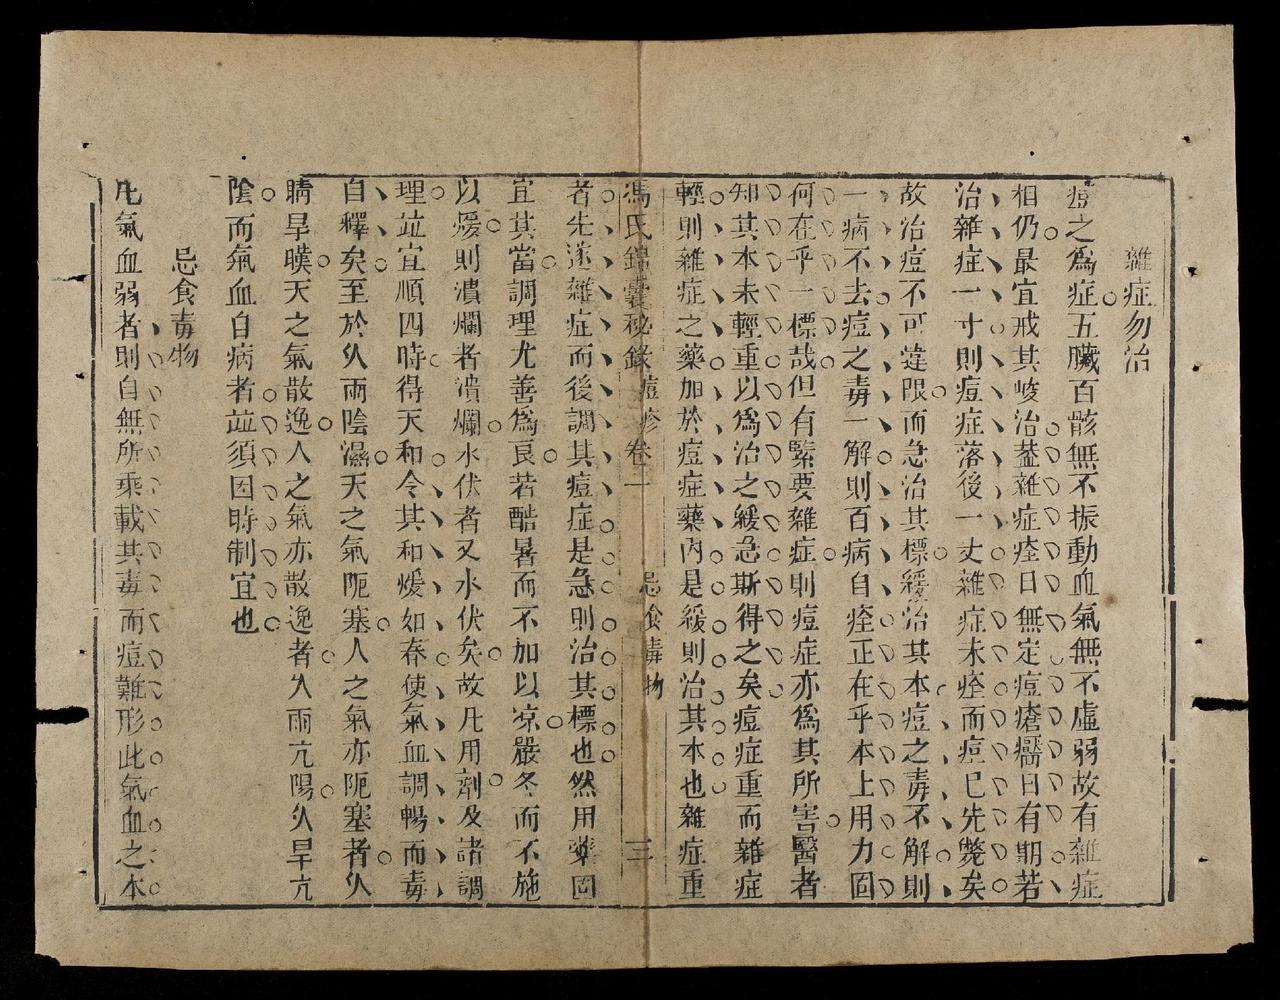 雜症勿治
痘之為症五臟百骸無不振動血氣無不虛弱故有雜症
相仍最宜戒其峻治葢雜症痊日無定痘瘡靨日有期若
治雜症一寸則痘症落後一丈雜症未痊而痘已先斃矣
故治痘不可違限而急治其標緩治其本痘之毒不解則
一病不去痘之毒一解則百病自痊正在乎本上用力固
何在乎一標哉但有緊要雜症則痘症亦為其所害醫者
知其本末輕重以為治之緩急斯得之矣痘症重而雜症
輕則雜症之藥加於痘症藥內是緩則治其本也雜症重
馮氏錦囊秘錄痘疹卷二 忌食毒物 三
者先逐雜症而後調其痘症是急則治其標也然用藥固
宜其當調理尤善為良若酷暑而不加以凉嚴冬而不施
以煖則潰爛者潰爛水伏者又水伏矣故凡用劑及諸調
理並宜順四時得天和令其和煖如春使氣血調暢而毒
自釋矣至於久雨陰濕天之氣阨塞人之氣亦阨塞者久
晴旱暵天之氣散逸人之氣亦散逸者久雨亢陽久旱亢
陰而氣血自病者並須因時制宜也
忌食毒物
凡氣血弱者則自無所乘載其毒而痘難形此氣血之本